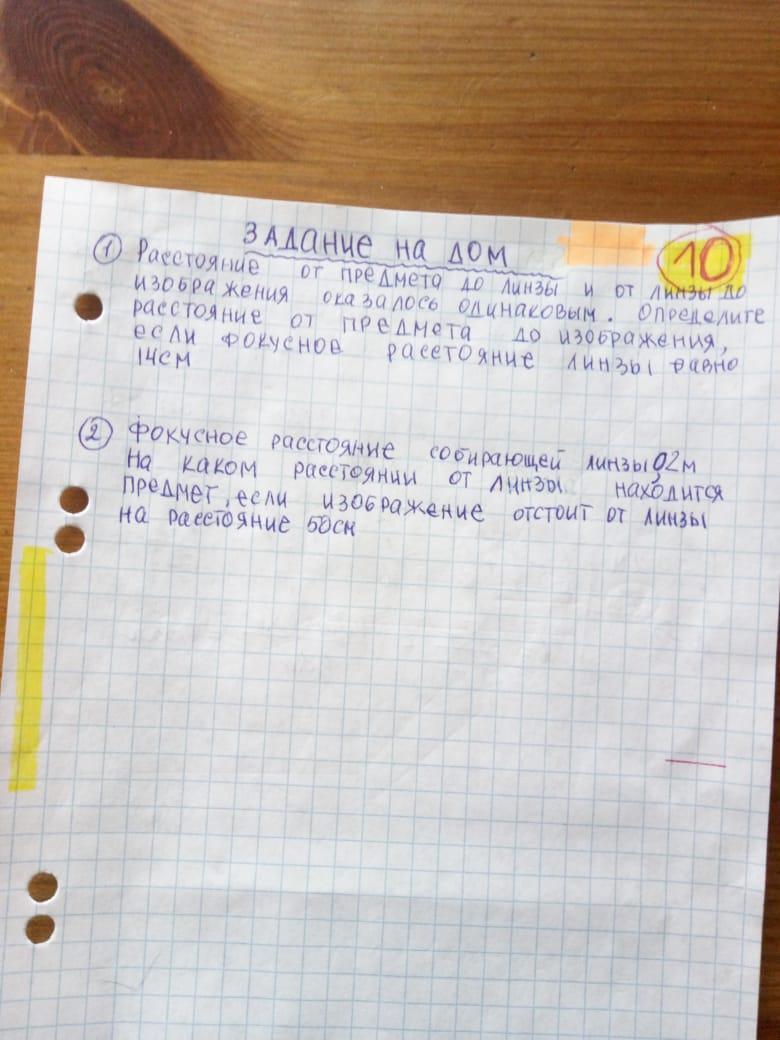 ЗАДАНИЕ НА ДОМ
10
① Расстояние от предмета до линзы и от линзы до
изображения оказалось одинаковым. Определите
расстояние от предмета до изображения,
если фокусное расстояние линзы равно
14см
② Фокусное расстояние собирающей линзы 0,2м
На каком расстоянии от линзы находится
предмет, если изображение отстоит от линзы
на расстояние 50см